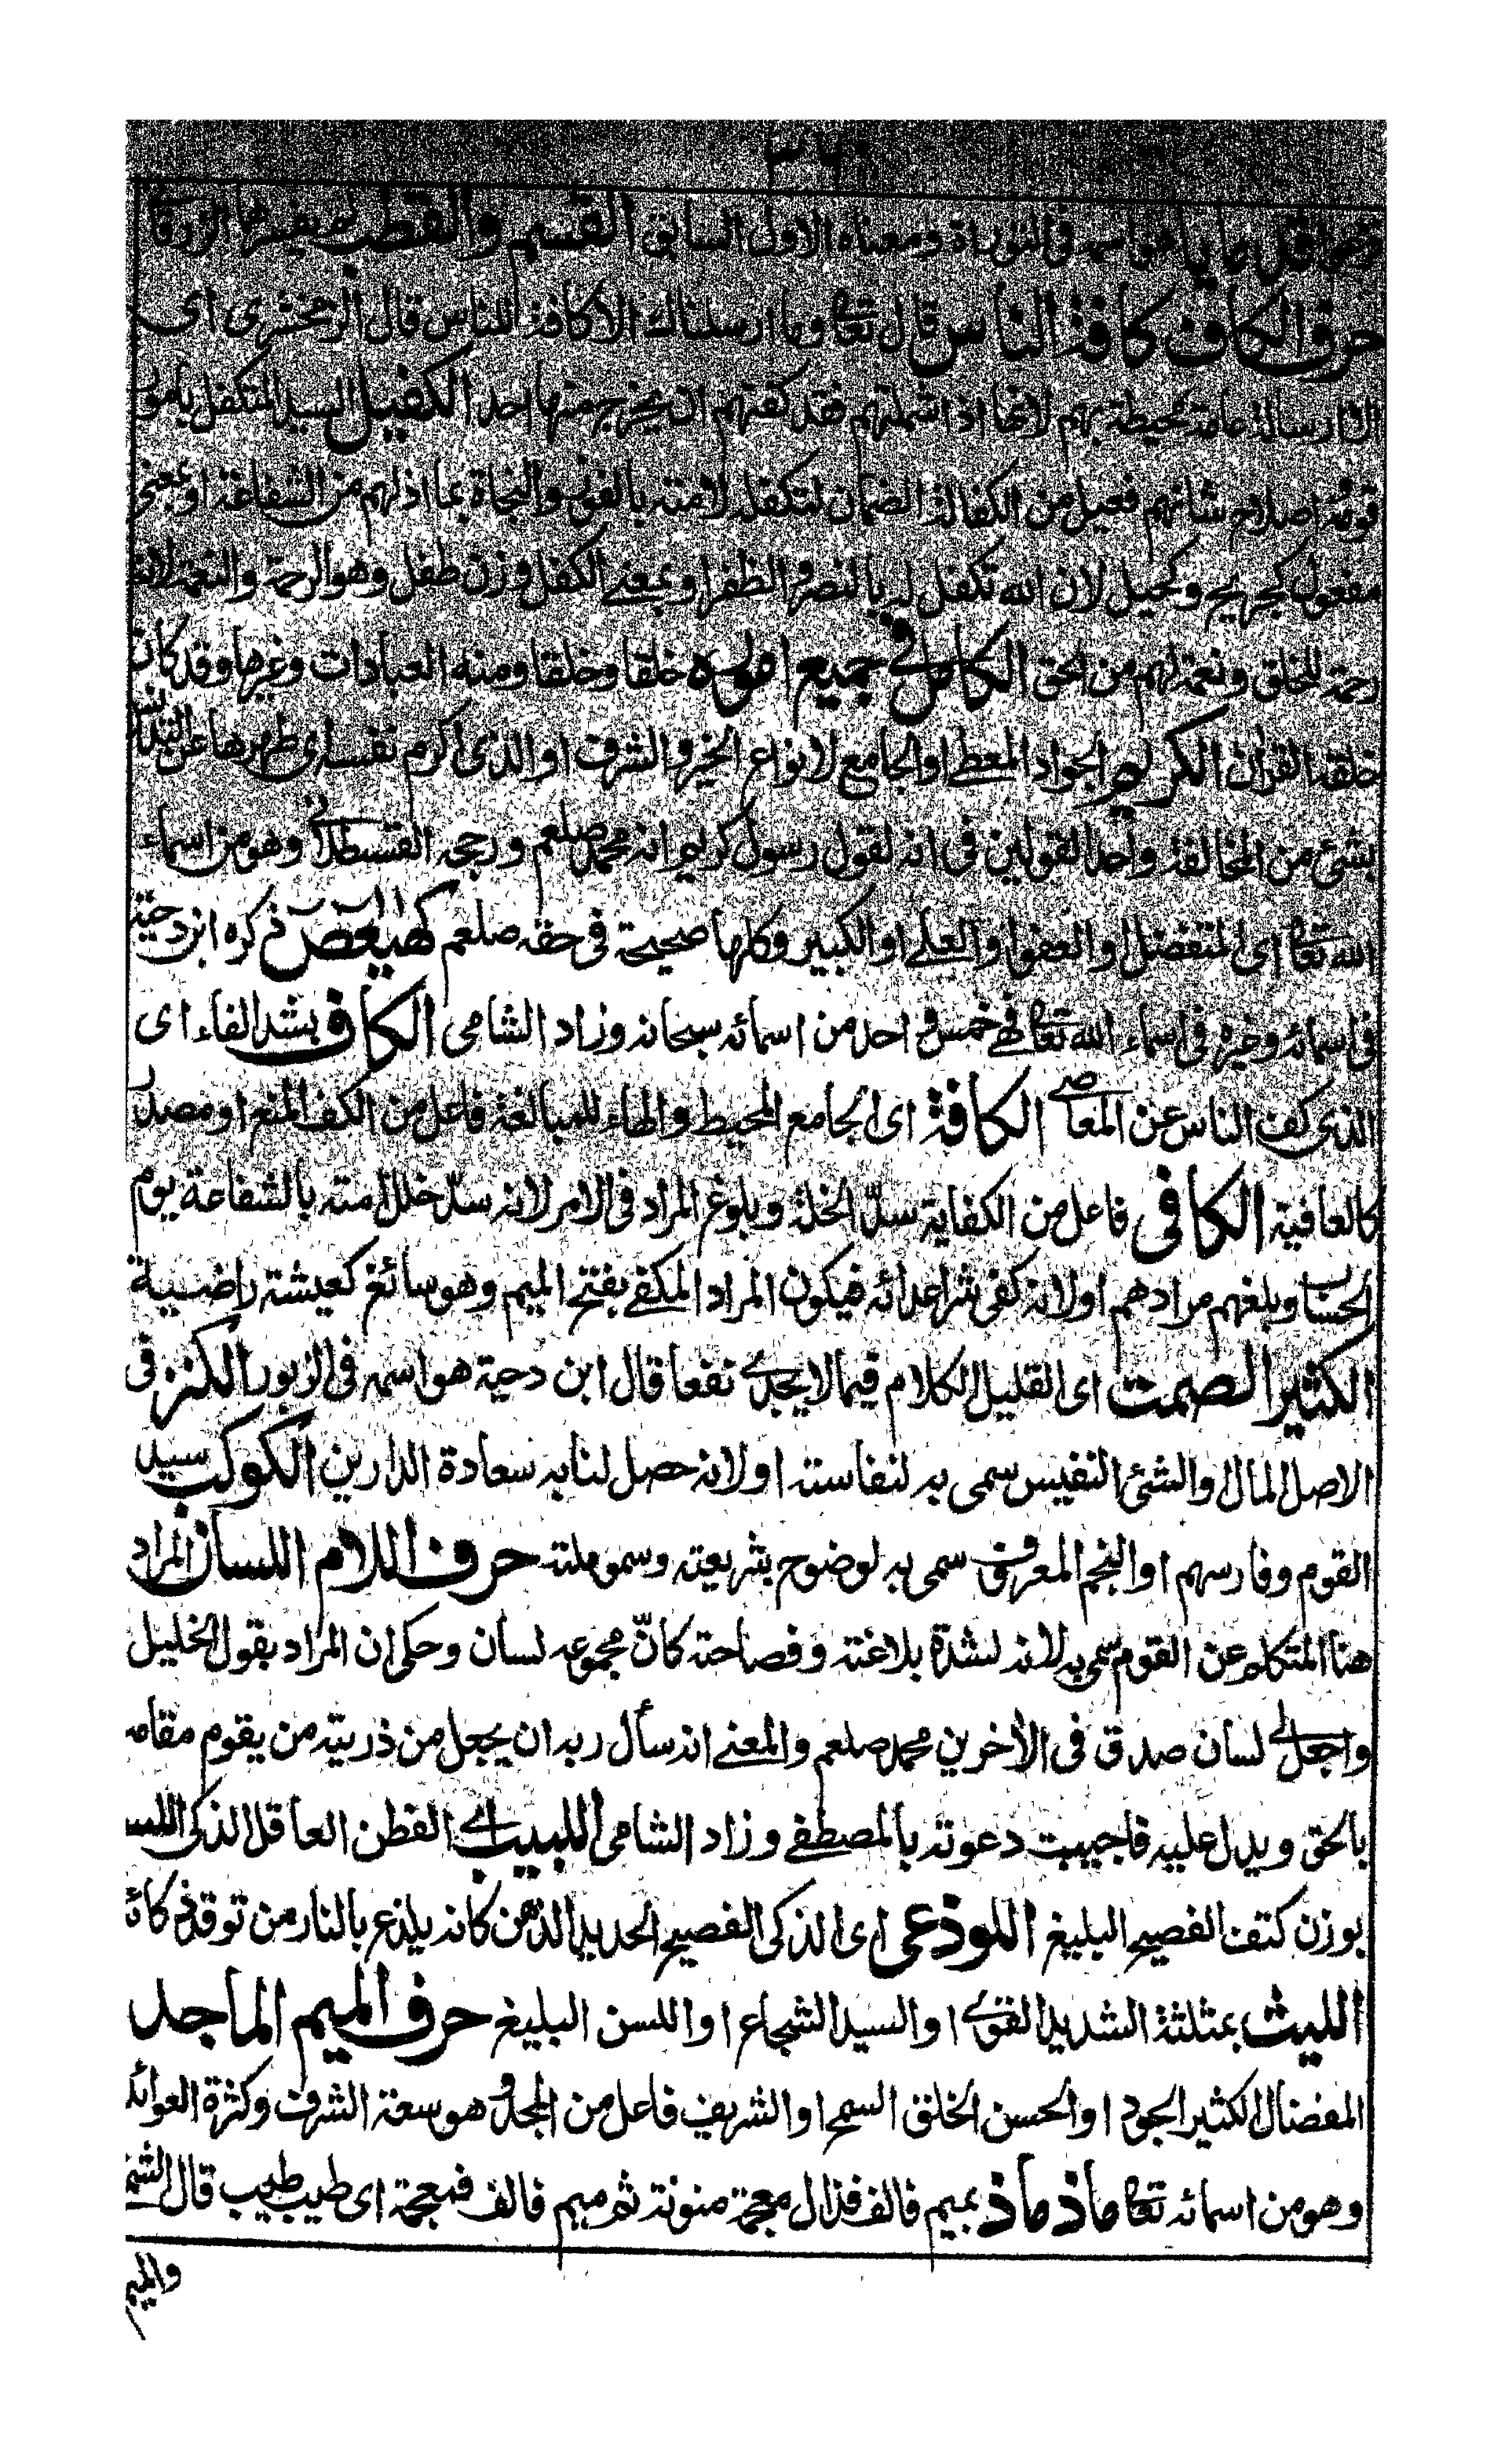 هو اسمه فى التوراة ومعناه الاول السابق القسم والقطب لم يفسرهما الزرقا
حرف الكاف كافة الناس قال تعا وما ارسلناك الا كافة للناس قال الزمخشرى اى
الا ارسالة عامة محيطة بهم لانها اذا شملتهم فقد كفتهم ان يخرج منها احد الكفيل السيد المتكفل بامور
قومه اصلاح شانهم فعيل من الكفالة الضمان لتكفله لامته بالفوز والنجاة بما اذلهم من الشفاعة او بمعنى
مفعول كجريح وكحيل لان الله تكفل له بالنصر والظفر او بمعنے الكفل وزن طفل وهو الرحمة والنعمة لانه
رحمة للخلق ونعمة لهم من الحق الكامل فے جميع اموره خلقا وخلقا ومنه العبادات وغيرها وقد كان
خلقه القران الكريم الجواد المعطے او الجامع لانواع الخير والشرف او الذى اكرم نفسه اى طهرها عن التدنس
بشئ من المخالفة واحد القولين فى انه لقول رسول كريم انه محمد صلعم ورجحه القسطلانے وهو من اسماء
الله تعا اى المتفضل او العفو او العلے او الكبير وكلها صحيحة فى حقه صلعم كهيعص ذكره ابن دحية
فى اسمائه وغيره فى اسماء الله تعا فهے خمس فے احد من اسمائه سبحانه وزاد الشامى الكاف بشد الفاء اى
الذى كف الناس عن المعاصے الكافة اى الجامع المحيط والهاء للمبالغة فاعل من الكف المنع او مصدر
كالعافية الكافى فاعل من الكفاية سدّ الخلة وبلوغ المراد فى الامر لانه سدّ خلل امته بالشفاعة يوم
الحساب وبلغهم مرادهم او لانه كفى شر اعدائه فيكون المراد المكفے بفتح الميم وهو سائغ كعيشة راضية
الكثير الصمت اى القليل الكلام فيما لا يجدے نفعا قال ابن دحية هو اسمه فى الزبور الكنز فى
الاصل المال او الشئ النفيس سمى به لنفاسته او لانه حصل لنا به سعادة الدارين الكوكب سيد
القوم وفارسهم او النجم المعروف سمى به لوضوح شريعته وسمو ملته حرف اللام اللسان المراد
هنا المتكلم عن القوم سمى به لانه لشدة بلاغته وفصاحته كانّ مجموعه لسان وحكى ان المراد بقول الخليل
واجعل لے لسان صدق فى الأخرين محمد صلعم والمعنے انه سأل ربه ان يجعل من ذريته من يقوم مقامه
بالحق ويدل عليه فاجيبت دعوته بالمصطفے وزاد الشامى اللبيب اے الفطن العاقل الذكى اللسن
بوزن كتف الفصيح البليغ اللوذعى اى الذكى الفصيح الحديد الذهن كانه يلذع بالنار من توقد ذكائه
الليث بمثلثة الشديد القوے او السيد الشجاع او اللسن البليغ حرف الميم الماجد
المفضال الكثير الجود او الحسن الخلق السمح او الشريف فاعل من المجد وهو سعة الشرف وكثرة العوائد
وهو من اسمائه تعا ماذ ماذ بميم فالف فذال معجمة منونة ثم ميم فالف فمعجمة اى طيب طيب قال الشمنے
والميم